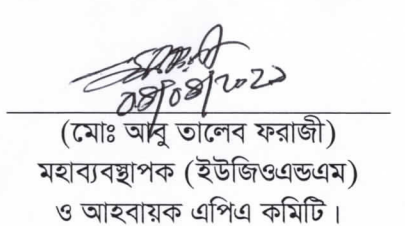 (মোঃ আবু তালেব ফরাজী)
মহাব্যবস্থাপক (ইউজিওএন্ডএম)
ও আহবায়ক এপিএ কমিটি।